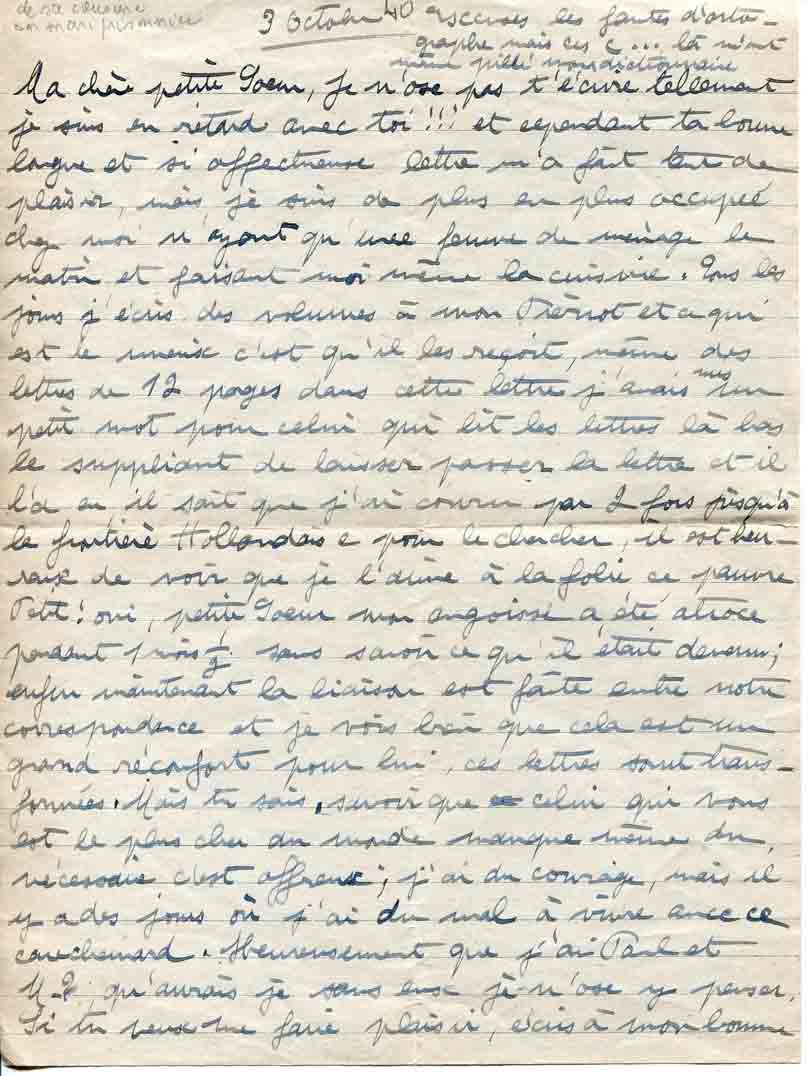 de sa cousine
son mari prisonnier
3 Octobre 40 Excuses les fautes d'orto-
graphe mais ces c... là m'ont
même pillé mon dictionnaire
Ma chère petite Soeur, Je n'ose pas t'écrire tellement
je suis en retard avec toi!!! et cependant ta bonne
longue et si affectueuse lettre m'a fait tant de
plaisir, mais je suis de plus en plus occupée
chez moi n'ayant qu'une femme de ménage le
matin et faisant moi même la cuisine. Tous les
jours j'écris des volumes à mon Pierrot et ce qui
est le mieux c'est qu'il les reçoit, même des
lettres de 12 pages dans cette lettre j'avais mis un
petit mot pour celui qui lit les lettres là bas
le suppliant de laisser passer la lettre et il
l'a eu, il sait que j'ai couru par 2 fois jusqu'à
la frontière Hollandaise pour le chercher, il est heu-
reux de voir que je l'aime à la folie ce pauvre
Petit! oui, petite Soeur mon angoisse a été atroce
pendant 1 mois ½ sans savoir ce qu'il était devenu;
enfin maintenant la liaison est faite entre notre
correspondance et je vois bien que cela est un
grand réconfort pour lui, ces lettres sont trans-
formées. Mais tu sais, savoir que celui qui vous
est le plus cher au monde manque même du
nécessaire c'est affreux; j'ai du courage, mais il
y a des jours où j'ai du mal à vivre avec ce
cauchemard. Heureusement que j'ai Paul et
qu'aurais je sans eux je n'ose y penser.
Si tu veux me faire plaisir, écris à mon bonne